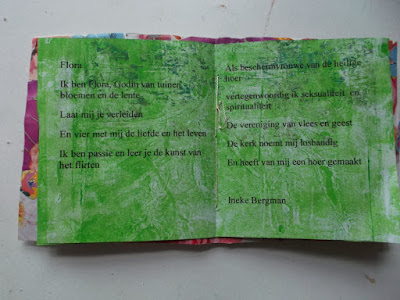 Flora
Ik ben Flora, Godin van tuinen,
bloemen en de lente
Laat mij je verleiden
En vier met mij de liefde en het leven
Ik ben passie en leer je de kunst van
het flirten
Als beschermvrouwe van de heilige
hoer
vertegenwoordig ik seksualiteit en
spiritualiteit
De vereniging van vlees en geest
De kerk noemt mij losbandig
En heeft van mij een hoer gemaakt
Ineke Bergman